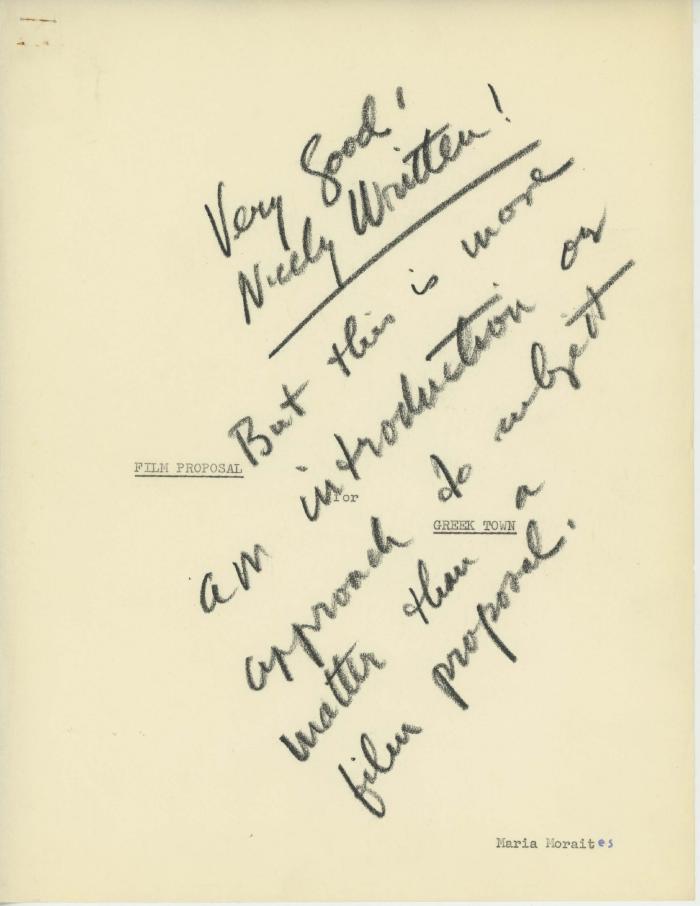 Very good!
Nicely Written!
But this is more
an introduction or
approach to subject
matter than a
film proposal.
FILM PROPOSAL
for
GREEK TOWN
Maria Moraites